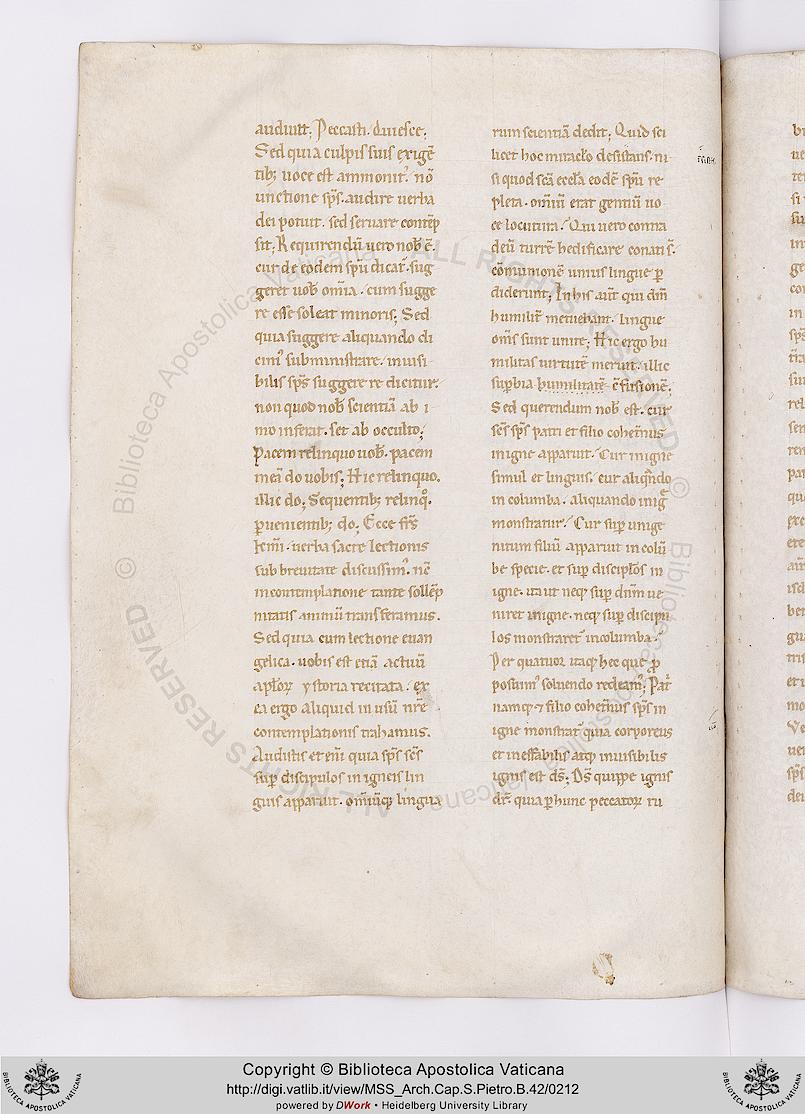 audivit; Peccasti. Quiesce;
Sed quia culpis suis exigē
tib; voce est ammonit᷒. nō
unctione sp̄s. audire verba
dei potuit. sed servare contēp
sit; Requirendū vero nob̄ ē.
cur de eodem sp̄u dicat᷒. sug
geret vob̄ om̄ia. cum sugge
re esse soleat minoris; Sed
quia suggere aliquando di
cim᷒ subministrare. invisi
bilis sp̄s suggere re dicitur.
non quod nob̄ scientiā ab i
mo inferat. set ab occulto;
Pacem relinquo vob̄. pacem
meā do vobis; Hic relinquo.
illic do; Sequentib; relinq̊.
p̱venientib; do; Ecce fr̄s
k̄mi. verba sacre lectionis
sub brevitate discussim᷒. n̄c
in contemplatione tante sollēp
nitatis animū transferamus.
Sed quia cum lectione evan
gelica. vobis est etiā actuū
ap̄loꝝ ystoria recitata. ex
ea ergo aliquid in usū nr̄e
contemplationis trahamus.
Audistis et eni᷒ quia sp̄s sc̄s
sup̱ discipulos in igneis lin
guis apparuit. omīuq; lingua
rum scientiā dedit; Quid sci
licet hoc miracło desi᷒tans. ni
si quod sc̄a eccła eodē sp̄u re
pleta. omīu erat gentiū vo
ce locutura. Qui vero contra
deū turrē hedificare conati s̄.
cōmunionē unius lingue p̱
diderunt; In his aut̄ qui dm̄
humilit̄ metuebant. lingue
om̄s sunt unite; Hic ergo hu
militas virtutē meruit. illic
sup̱bia humilitatē cfusionē;
Sed querendum nob̄ est. cur
sc̄s sp̄s patri et filio coheternus
in igne apparuit. Cur in igne
simul et linguis. cur aliqn̄do
in columba. aliquando in igne
monstratur. Cur sup̱ unige
nitum filiū apparuit in colū
be specie. et sup̱ discipłos in
igne. ita ut neq; sup̱ dnm̄ ve
niret in igne. neq; sup̱ discipu
los monstraret᷒ in columba.
Per quatuor itaq; hec que p̱
posuim᷒ solvendo redeam᷒; Pat̄
namq; ⁊ filio coheternus sp̄s in
igne monstrat᷒ quia corporeus
et ineffabilis atq; invisibilis
ignis est ds̄; Ds̄ quippe ignis
dr̄. quia p̱ hunc peccatoꝝ ru
Copyright © Biblioteca Apostolica Vaticana
http://digi.vatlib.it/view/MSS_Arch.Cap.S.Pietro.B.42/0212
powered by DWork • Heidelberg University Library